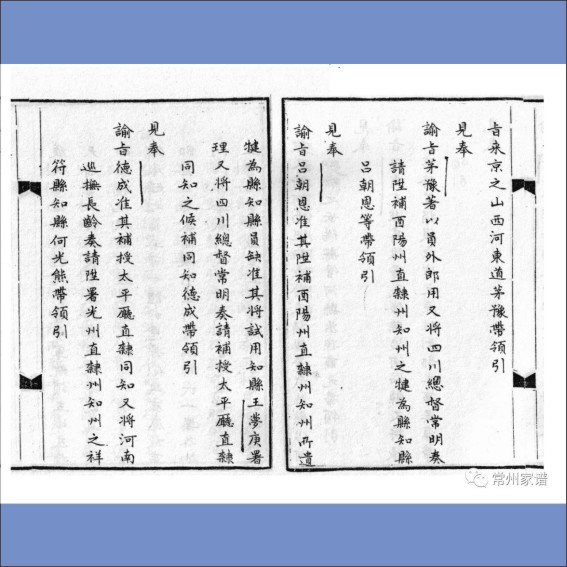 旨來京之山西河東道茅豫帶領引
見奉
諭旨茅豫著以員外郎用又將四川總督常明奏
請陞補酉陽州直隸州知州之犍為縣知縣
呂朝恩等帶領引
見奉
諭旨呂朝恩准其陞補酉陽州直隸州知州所遺
犍為縣知縣員缺准其將試用知縣王夢庚署
理又將四川總督常明奏請補授太平廳直隸
同知之候補同知德成帶領引
見奉
諭旨德成准其補授太平廳直隸同知又將河南
巡撫長齡奏請陞署光州直隸州知州之祥
符縣知縣何光熊帶領引
常州家谱